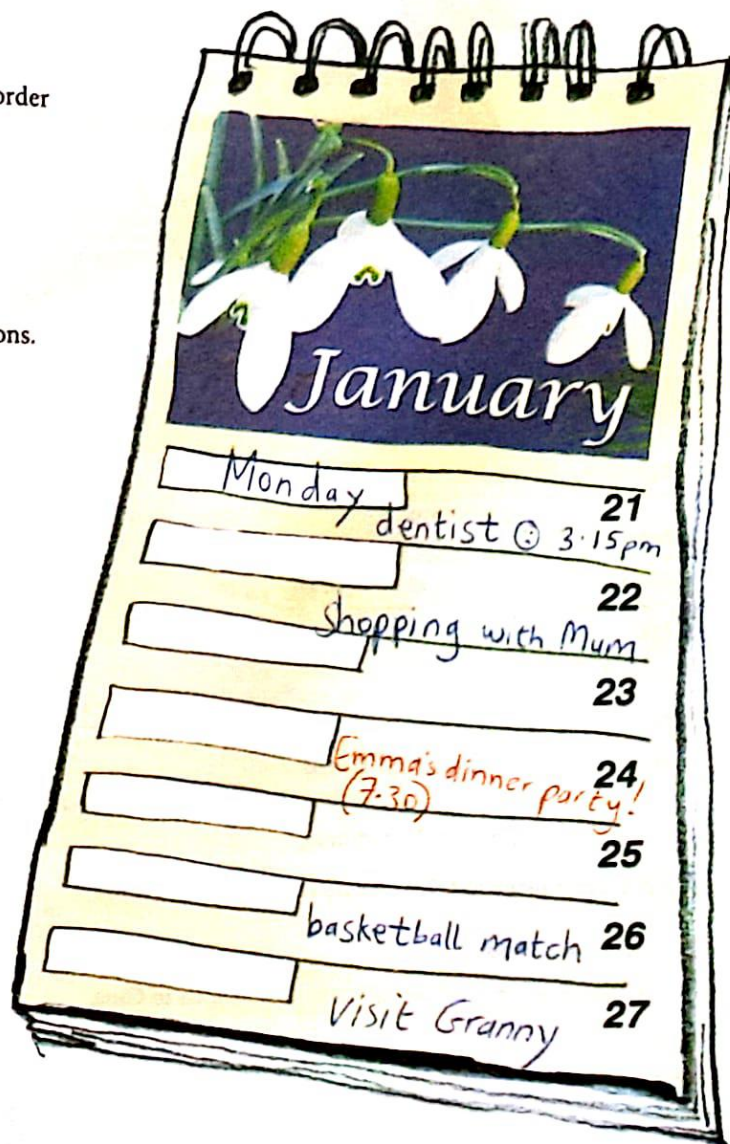 order
ons.
January
Monday 21
dentist @ 3.15pm
22
shopping with Mum
23
24
Emma's dinner party!
(7.30)
25
basketball match 26
Visit Granny 27